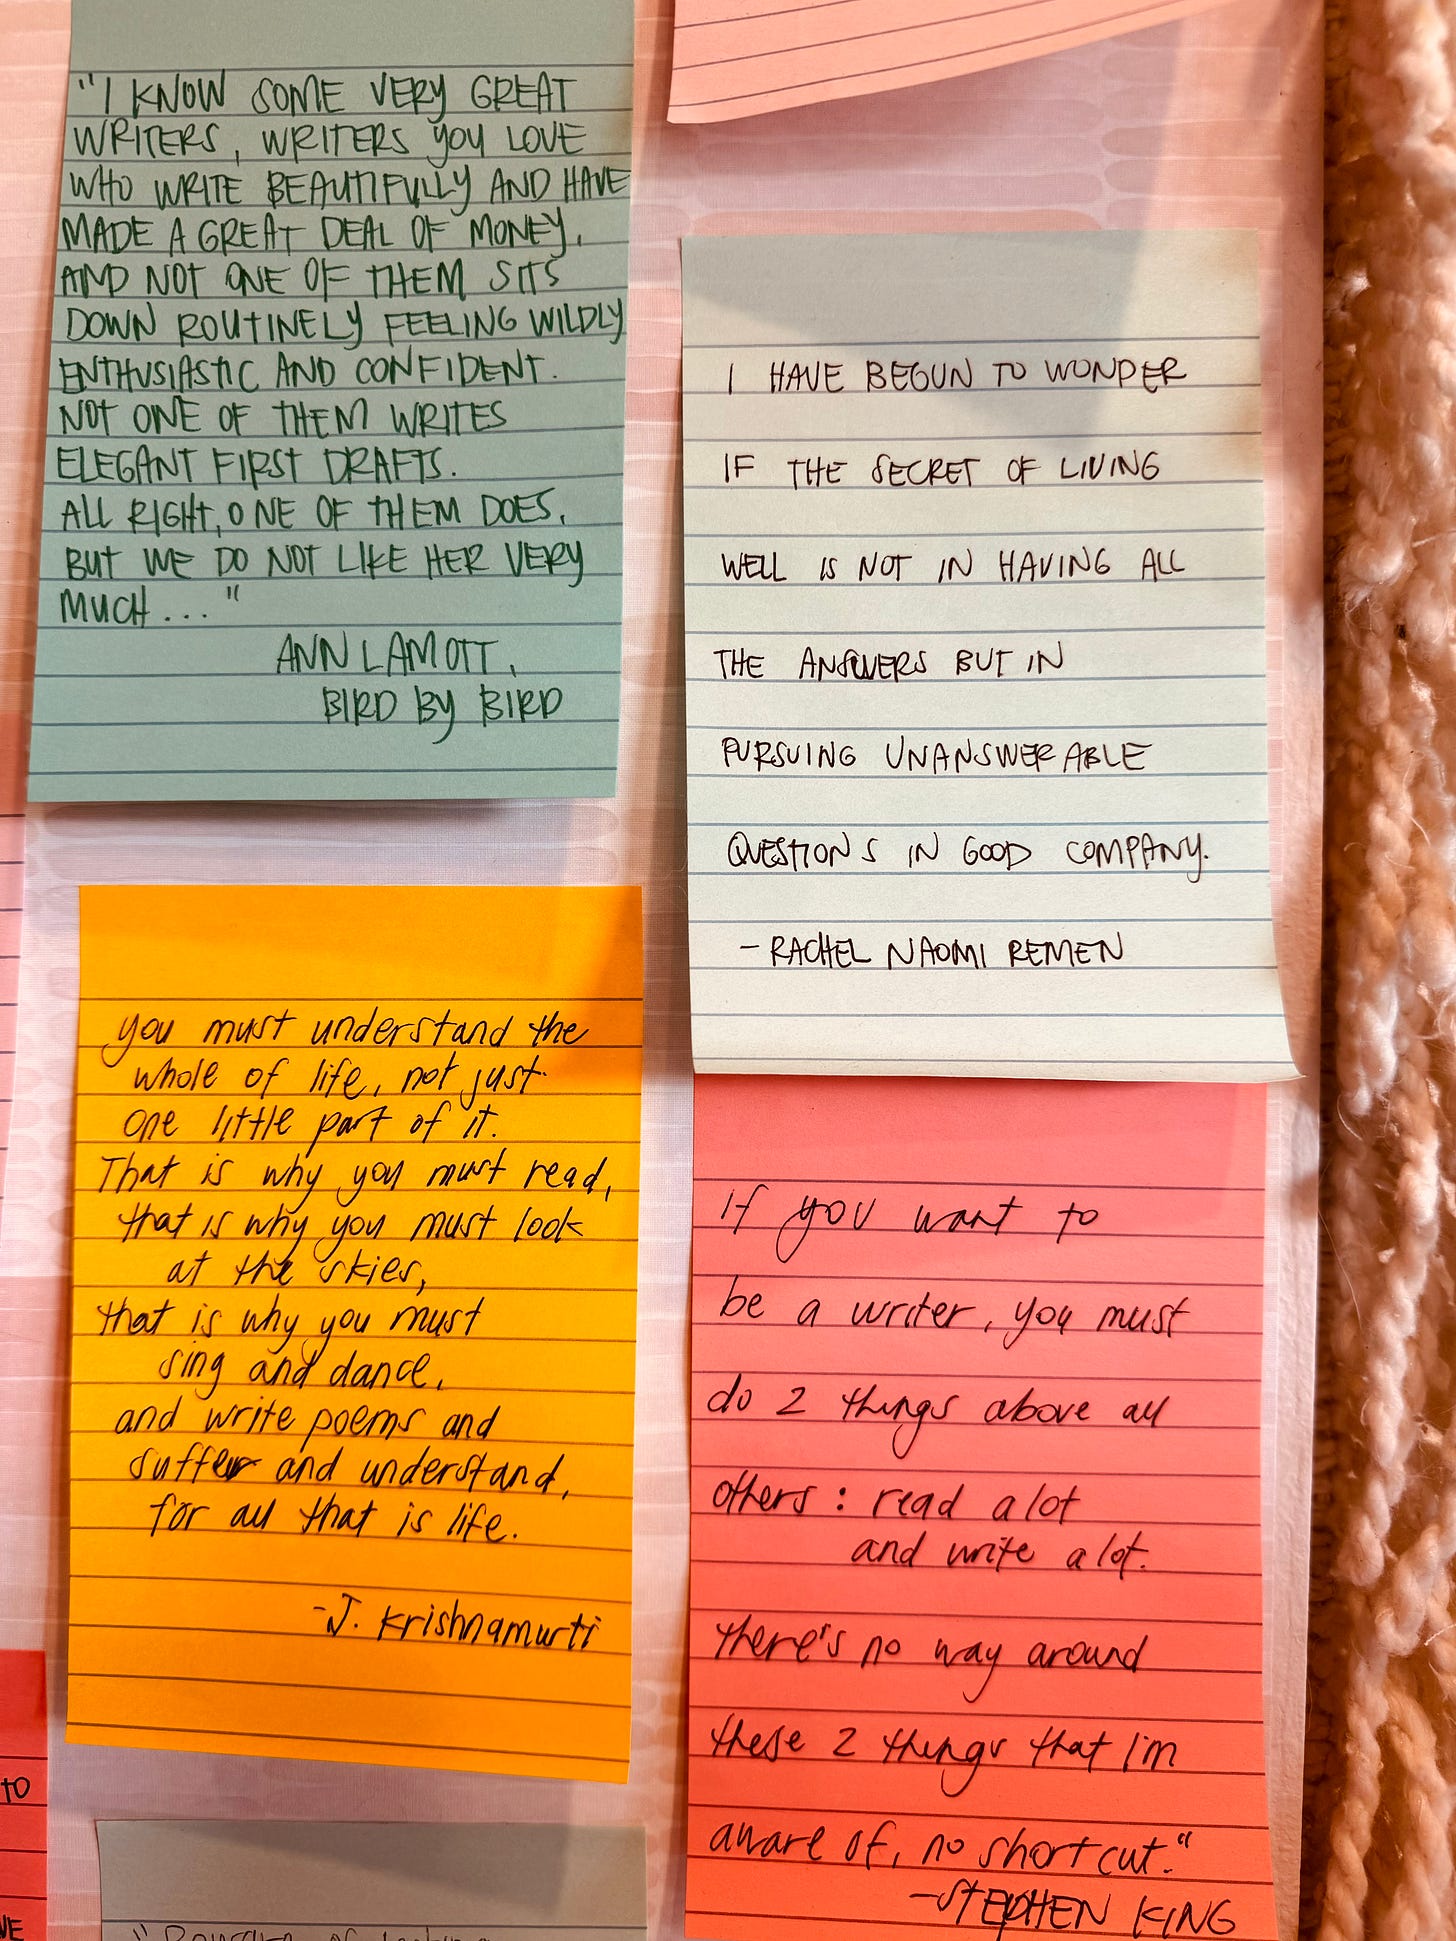 "I KNOW SOME VERY GREAT
WRITERS, WRITERS YOU LOVE
WHO WRITE BEAUTIFULLY AND HAVE
MADE A GREAT DEAL OF MONEY,
AND NOT ONE OF THEM SITS
DOWN ROUTINELY FEELING WILDLY
ENTHUSIASTIC AND CONFIDENT.
NOT ONE OF THEM WRITES
ELEGANT FIRST DRAFTS.
ALL RIGHT, ONE OF THEM DOES,
BUT WE DO NOT LIKE HER VERY
MUCH ... "
ANN LAMOTT,
BIRD BY BIRD
I HAVE BEGUN TO WONDER
IF THE SECRET OF LIVING
WELL IS NOT IN HAVING ALL
THE ANSWERS BUT IN
PURSUING UNANSWERABLE
QUESTIONS IN GOOD COMPANY.
- RACHEL NAOMI REMEN
you must understand the
whole of life, not just
one little part of it.
That is why you must read,
that is why you must look
at the skies,
that is why you must
sing and dance,
and write poems and
suffer and understand,
for all that is life.
- J. Krishnamurti
if you want to
be a writer, you must
do 2 things above all
others : read a lot
and write a lot.
there's no way around
these 2 things that I'm
aware of, no shortcut."
- STEPHEN KING
TO